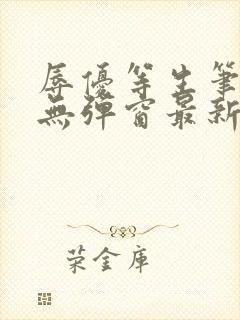 辱優等生筆
無彈窗最新
荣金庫